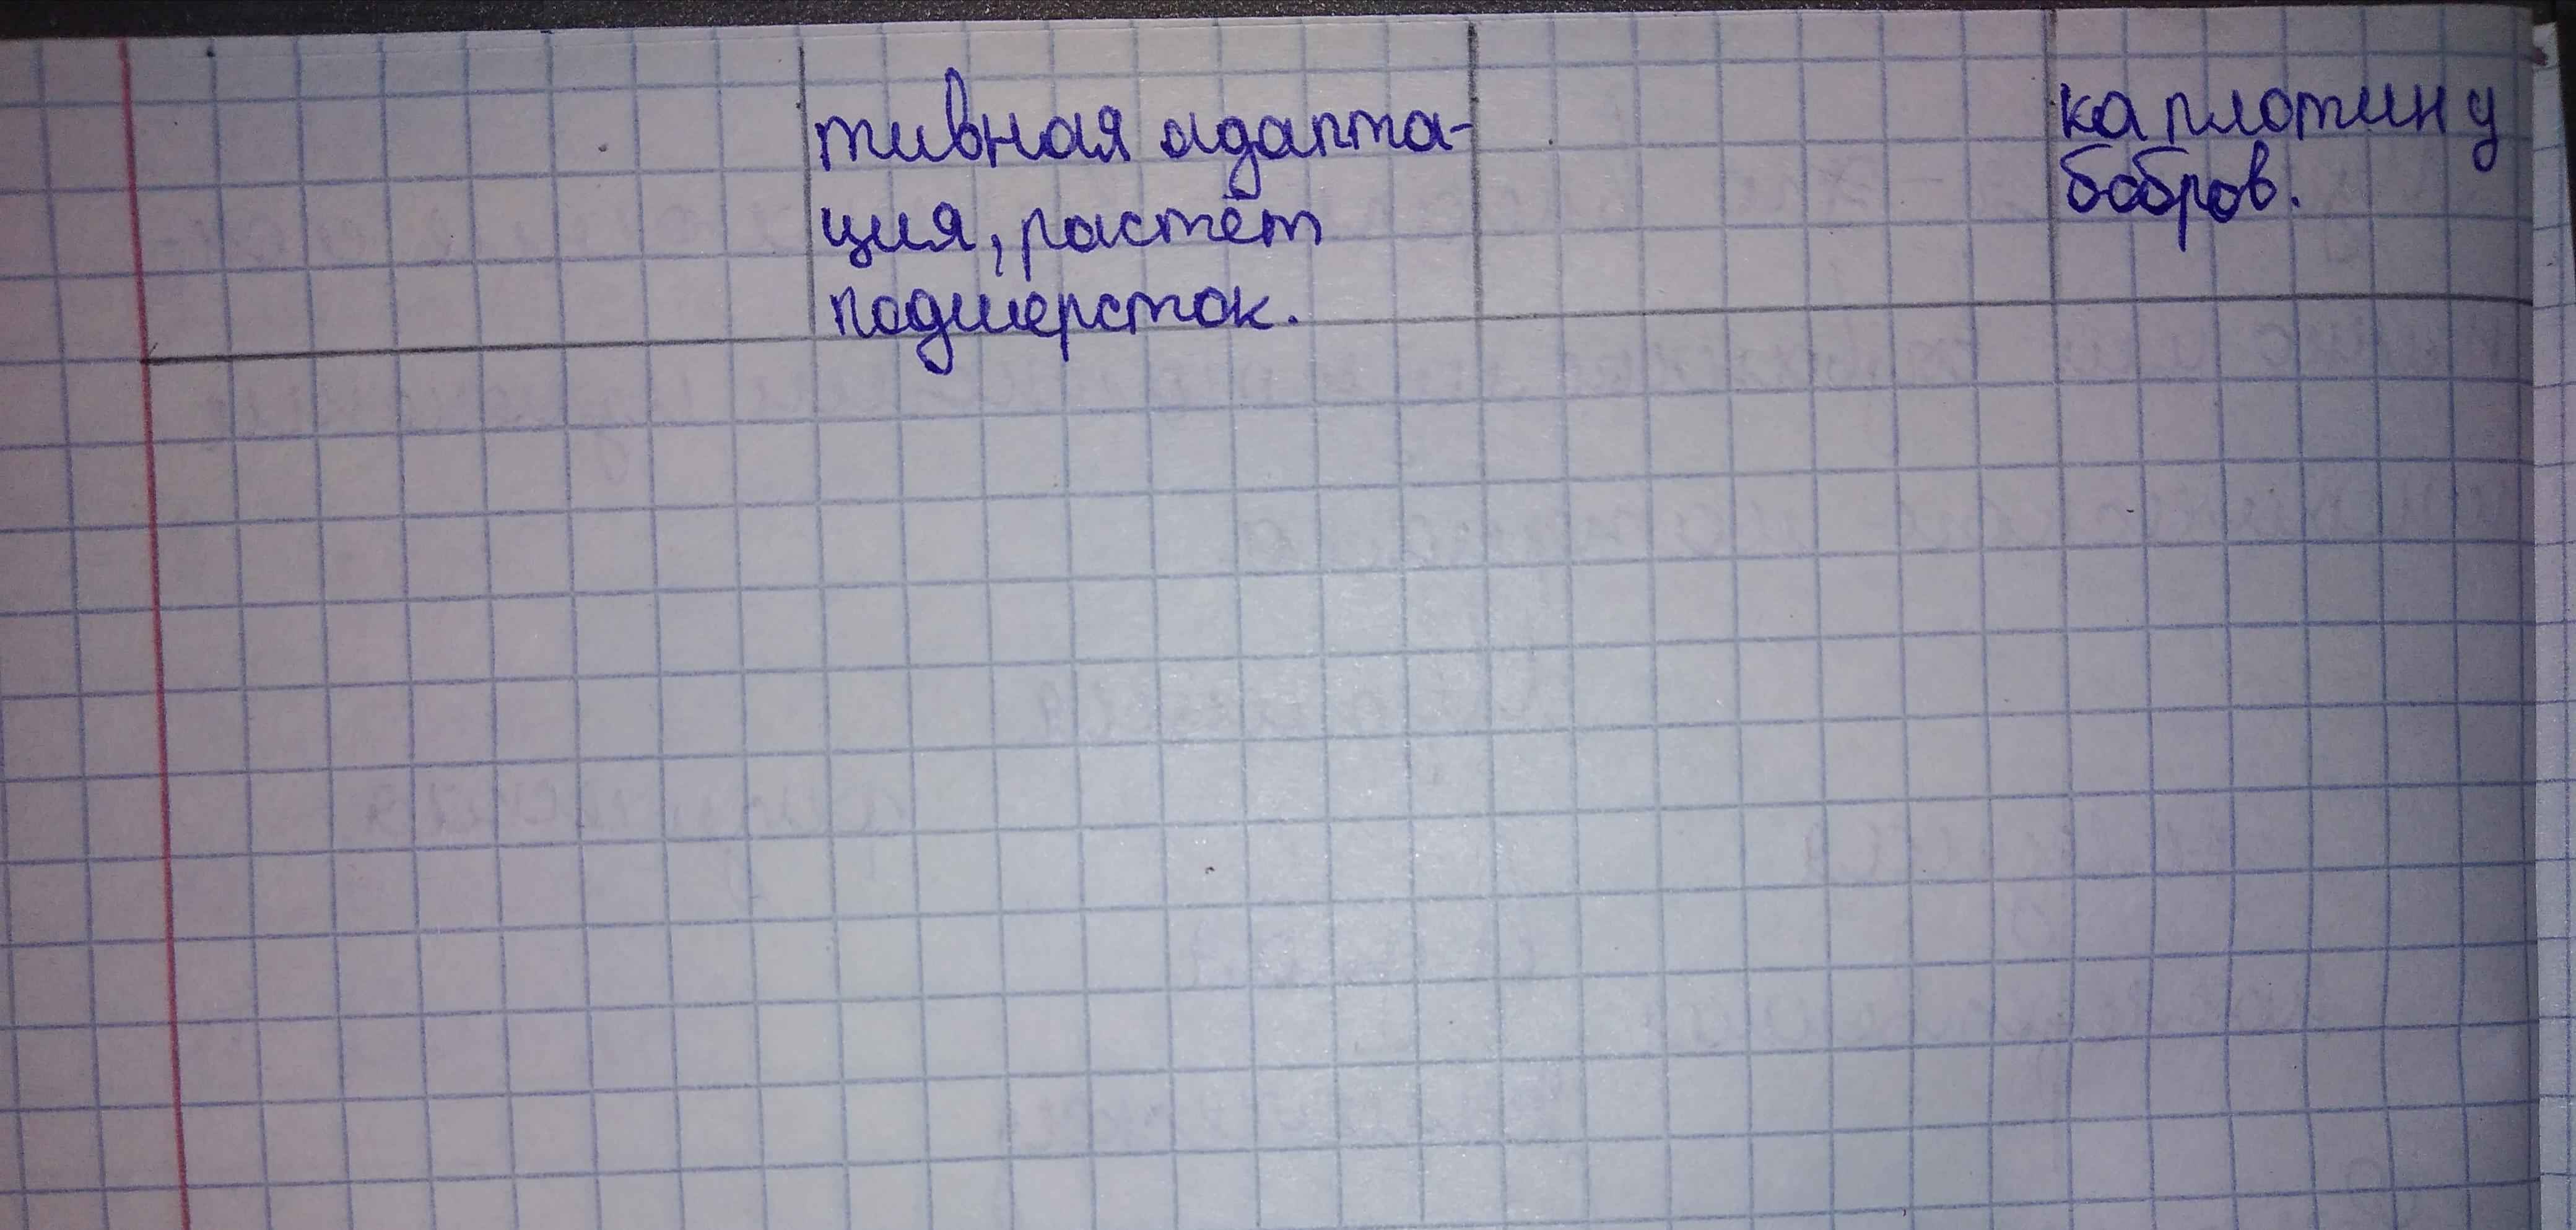 тивная адапта-
ция, растёт
подшерсток.
ка плотину
бобров.